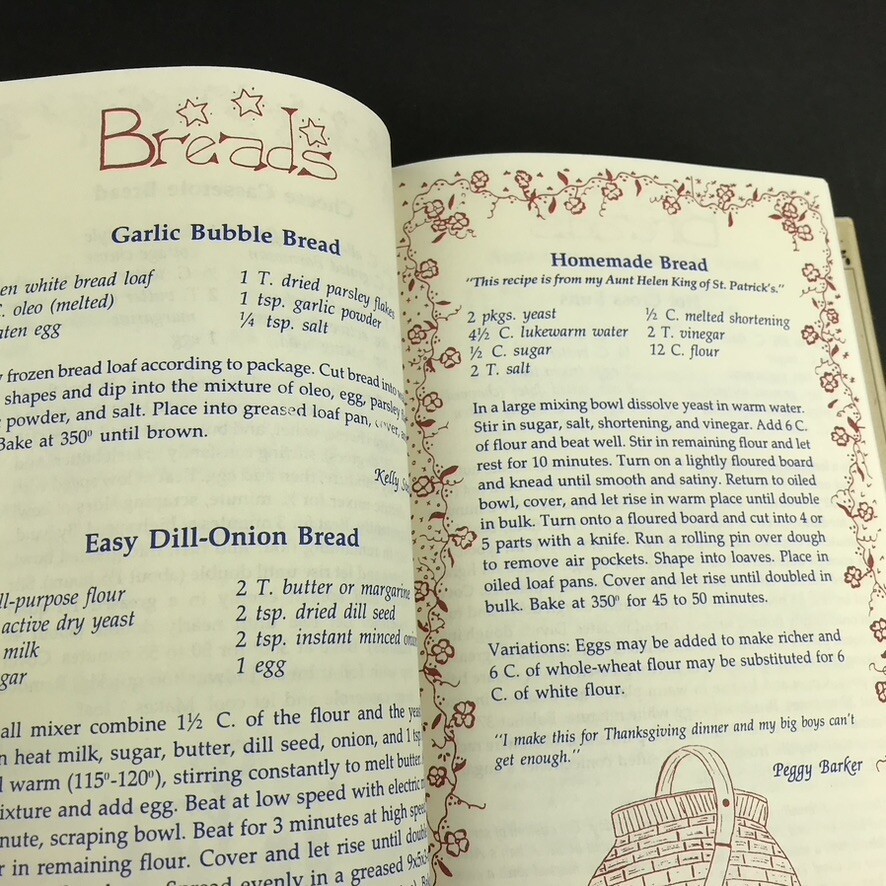 Breads
Garlic Bubble Bread
en white bread loaf
oleo (melted)
egg
1 T. dried parsley flakes
1 tsp. garlic powder
¼ tsp. salt
frozen bread loaf according to package. Cut bread into
shapes and dip into the mixture of oleo, egg, parsley
powder, and salt. Place into greased loaf pan, cover,
Bake at 350º until brown.
Kelly
Easy Dill-Onion Bread
ll-purpose flour
active dry yeast
milk
gar
2 T. butter or margarine
2 tsp. dried dill seed
2 tsp. instant minced
1 egg
all mixer combine 1½ C. of the flour and the
n heat milk, sugar, butter, dill seed, onion, and 1
warm (115º-120º), stirring constantly to melt butter.
ixture and add egg. Beat at low speed with electric
nute, scraping bowl. Beat for 3 minutes at high speed
r in remaining flour. Cover and let rise until
evenly in a greased
Homemade Bread
"This recipe is from my Aunt Helen King of St. Patrick's."
2 pkgs. yeast
4½ C. lukewarm water
½ C. sugar
2 T. salt
½ C. melted shortening
2 T. vinegar
12 C. flour
In a large mixing bowl dissolve yeast in warm water.
Stir in sugar, salt, shortening, and vinegar. Add 6 C.
of flour and beat well. Stir in remaining flour and let
rest for 10 minutes. Turn on a lightly floured board
and knead until smooth and satiny. Return to oiled
bowl, cover, and let rise in warm place until double
in bulk. Turn onto a floured board and cut into 4 or
5 parts with a knife. Run a rolling pin over dough
to remove air pockets. Shape into loaves. Place in
oiled loaf pans. Cover and let rise until doubled in
bulk. Bake at 350º for 45 to 50 minutes.
Variations: Eggs may be added to make richer and
6 C. of whole-wheat flour may be substituted for 6
C. of white flour.
"I make this for Thanksgiving dinner and my big boys can't
get enough."
Peggy Barker